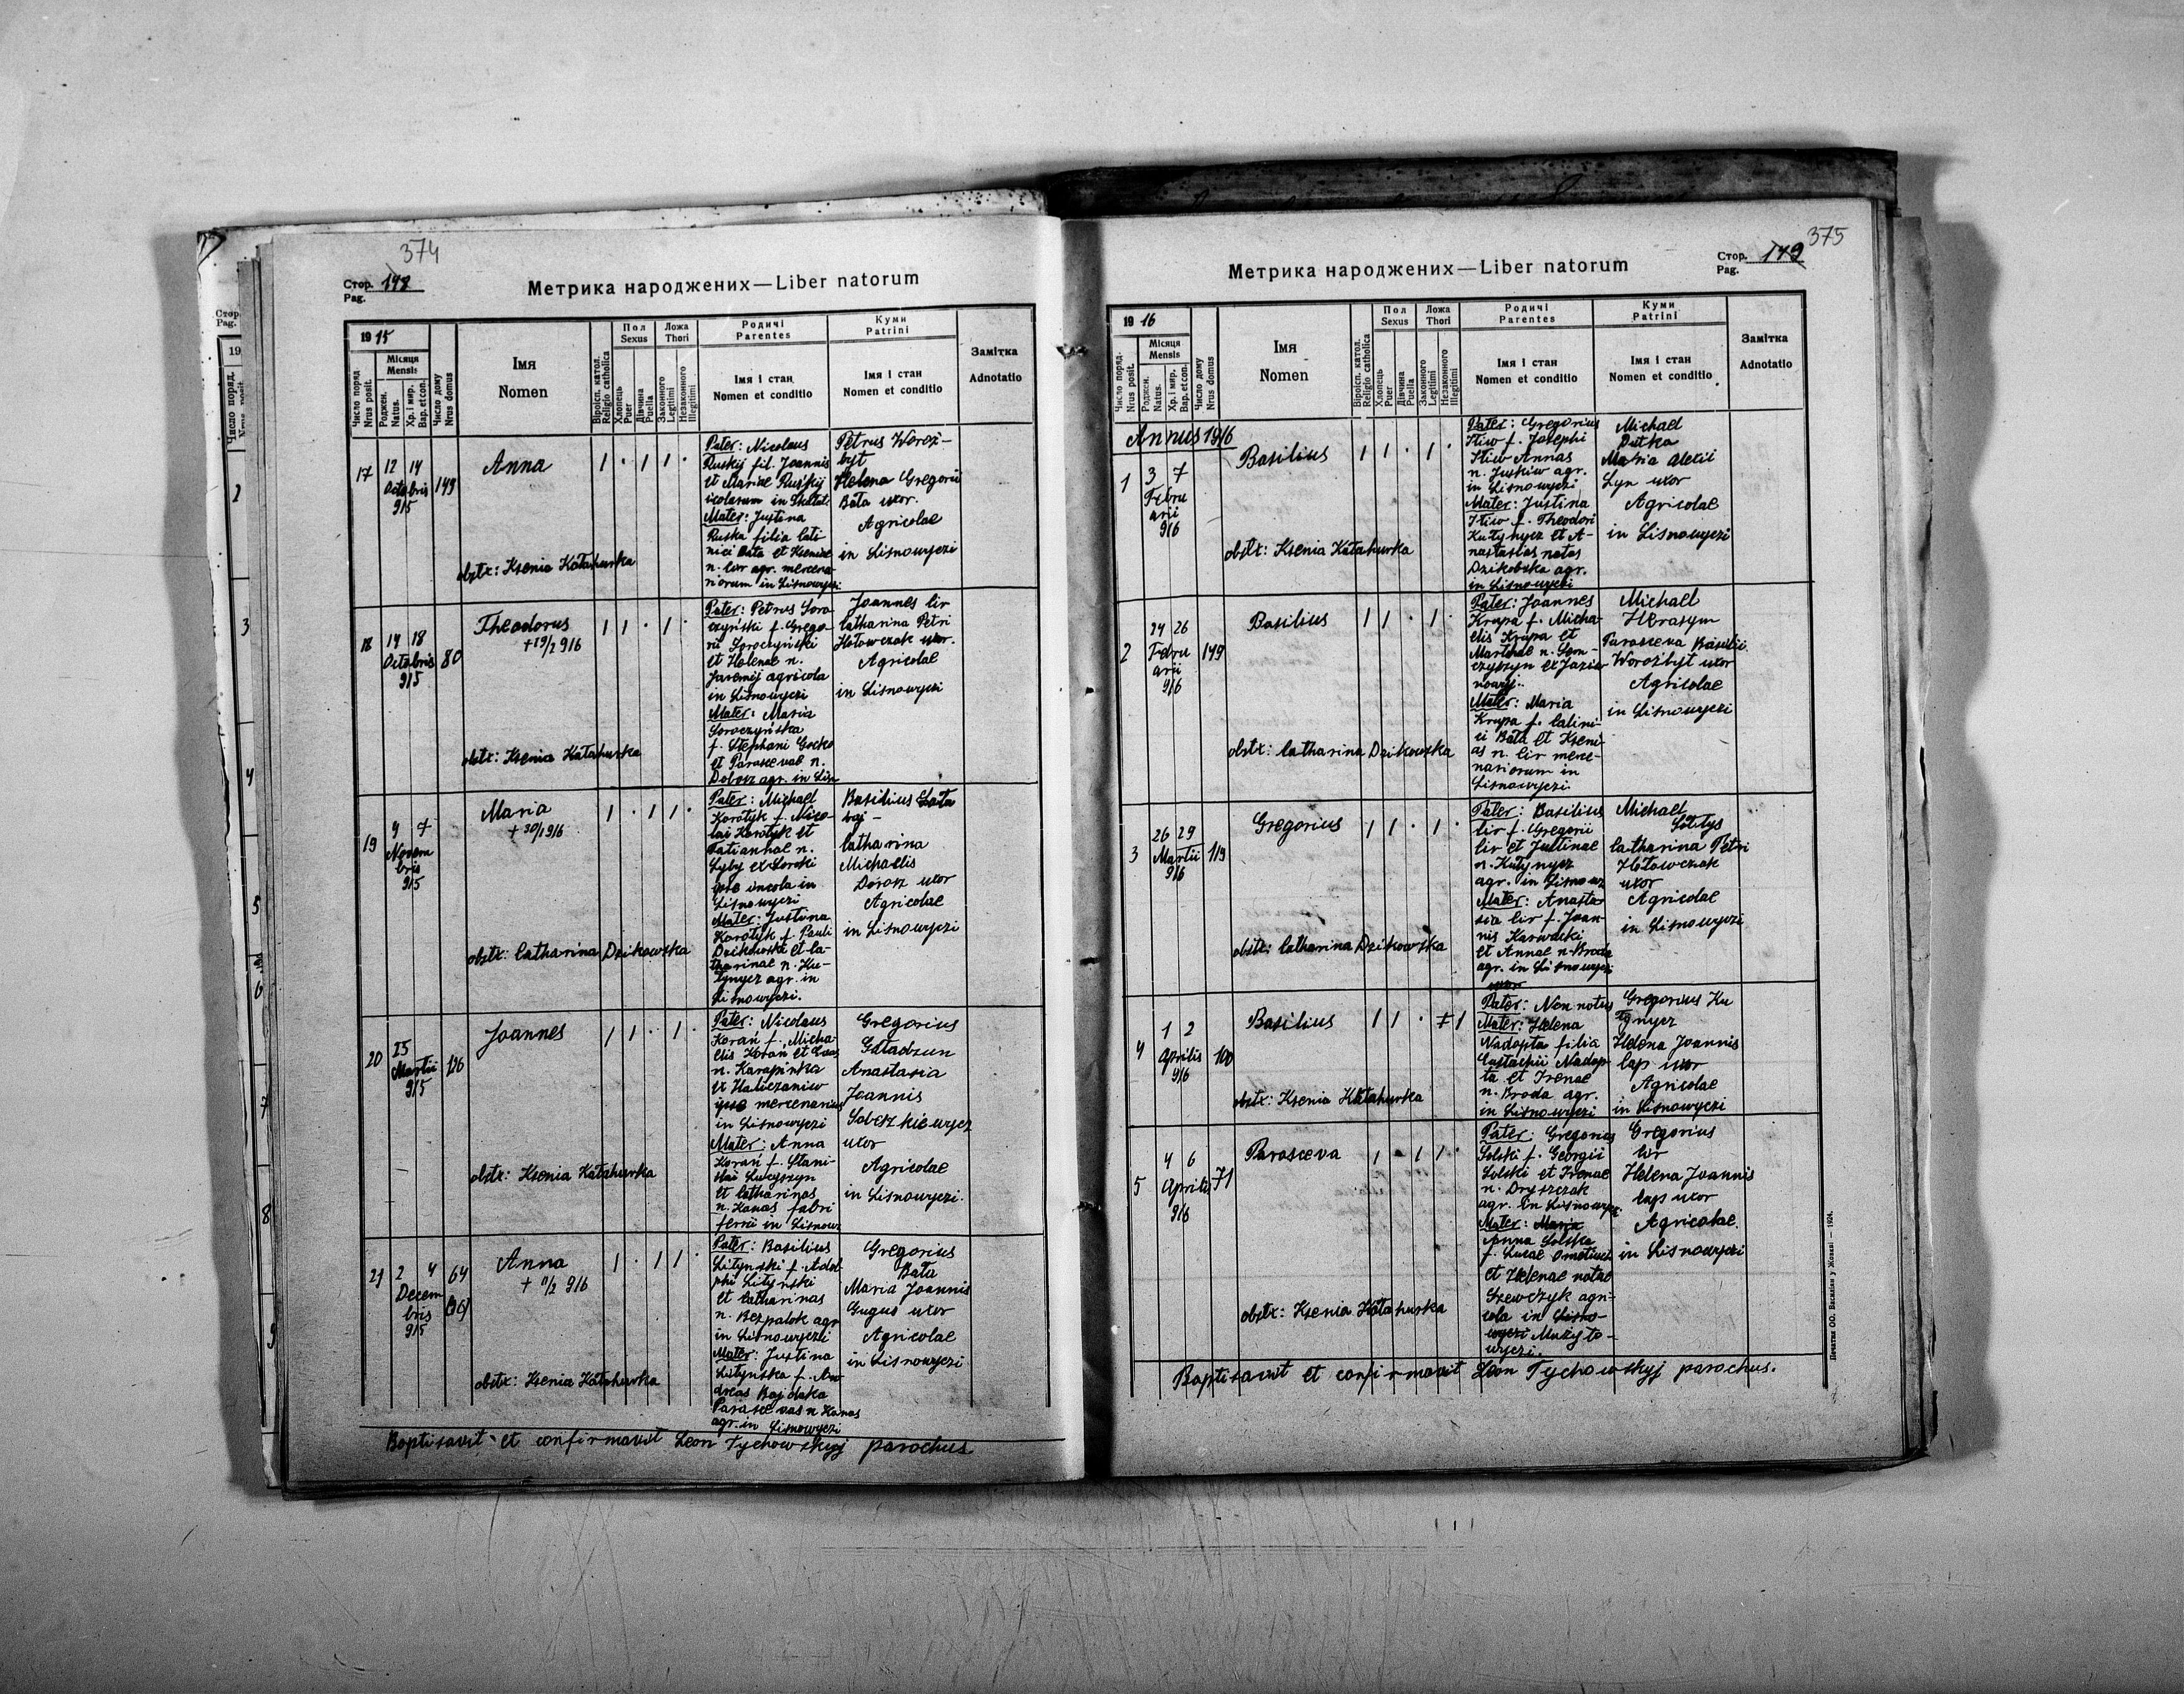 374
Стор. 148
Pag.
Метрика народжених—Liber natorum
19 15
Число поряд.
Nrus posit.
Місяця
Mensis
Роджен.
Natus.
Хр. і мир.
Bap. et con.
Число дому
Nrus domus
Імя
Nomen
Віроісп. катол.
Religio catholica
Пол
Sexus
Хлопець
Puer
Дівчина
Puella
Ложа
Thori
Законного
Legitimi
Незаконного
Illegitimi
Родичі
Parentes
Імя і стан
Nomen et conditio
Куми
Patrini
Імя і стан
Nomen et conditio
Замітка
Adnotatio
17
12 14
Octobris
915
149
Anna
obstx: Ksenia Kałahurka
Pater: Nicolaus
Ruskij fil. Joannis
et Mariae Ruskij
incolarum in Skałat
Mater: Justina
Ruska filia Cali-
nici Bała et Kseniae
n. Cir agr. mercena-
riorum in Lisnowyczi
Petrus Woroż-
byt
Helena Gregorii
Bała uxor.
Agricolae
in Lisnowyczi
18
14 18
Octobris
915
80
Theodorus
+ 19/2 916
obstx: Ksenia Kałahurka
Pater: Petrus Soro
czyński f. Grego-
rii Soroczyński
et Helenae n.
Jaremij agricola
in Lisnowyczi
Mater: Maria
Soroczyńska
f. Stephani Gocko
et Parascevae n.
Dobosz agr. in Lisn
Joannes Cir
Catharina Petri
Hołowczak uxor.
Agricolae
in Lisnowyczi
19
4 7
Novem
bris
915
Maria
+ 30/1 916
obstx: Catharina Dzikowska
Pater: Michael
Korotyk f. Nico-
lai Korotyk et
Tatiannae n.
Łyby ex Soroki
ipse incola in
Lisnowyczi
Mater: Justina
Korotyk f. Pauli
Dzikowski et Ca-
tharinae n. Ku-
tynycz agr. in
Lisnowyczi.
Basilius Łoto
Catharina
Michaelis
Dorosz uxor
Agricolae
in Lisnowyczi
20
25
Martii
915
126
Joannes
obstx: Ksenia Kałahurka
Pater: Nicolaus
Korań f. Micha-
elis Korań et Evae
n. Karapinka
ex Haliczaniw
ipse mercenarius
in Lisnowyczi
Mater: Anna
Korań f. Stani-
slai Lucyszyn
et Catharinas
n. Kanas fabri
ferrii in Lisnow.
Gregorius
Gaładzun
Anastasia
Joannis
Saleszkiewycz
uxor
Agricolae
in Lisnowyczi.
21
2 4
Decem
bris
915
64
Anna
+ 11/2 916
obstx: Ksenia Kałahurka
Pater: Basilius
Lityński f. Adol
phi Lityński
et Catharinas
n. Bezpałok agr
in Lisnowyczi
Mater: Justina
Lityńska f. An
dreas Bojdaka
Parascevas n Kanas
agr. in Lisnowyczi
Gregorius
Bała
Maria Joannis
Gugus uxor
Agricolae
in Lisnowyczi
Baptisavit et confirmavit Leon Tychowskyj parochus
375
Стор. 149
Pag.
Метрика народжених—Liber natorum
19 16
Число поряд.
Nrus posit.
Місяця
Mensis
Роджен.
Natus.
Хр. і мир.
Bap. et con.
Число дому
Nrus domus
Імя
Nomen
Віроісп. катол.
Religio catholica
Пол
Sexus
Хлопець
Puer
Дівчина
Puella
Ложа
Thori
Законного
Legitimi
Незаконного
Illegitimi
Родичі
Parentes
Імя і стан
Nomen et conditio
Куми
Patrini
Імя і стан
Nomen et conditio
Замітка
Adnotatio
Annus 1916
1
3 7
Febru
arii
916
Basilius
obstx: Ksenia Kałahurka
Pater: Gregorius
Iliw f. Josephi
Iliw Annas
n. Juśkiw agr.
in Lisnowyczi
Mater: Justina
Iliw f. Theodori
Kutynycz et A-
nastasias natas
Dzikowska agr.
in Lisnowyczi
Michael
Dutka
Maria Alexii
Łyn uxor
Agricolae
in Lisnowyczi
2
24 26
Febru
arii
916
149
Basilius
obstx: Catharina Dzikowska
Pater: Joannes
Krupa f. Micha-
elis Krupa et
Marthae n. Sem-
czyszyn ex Jazie
nowyj.
Mater: Maria
Krupa f. Calini-
ci Bała et Kseni-
as n. Cir merce-
nariorum in
Lisnowyczi
Michael
Herasym
Parasceva Basilii
Worożbyt uxor
Agricolae
in Lisnowyczi
3
26 29
Martii
916
119
Gregorius
obstx: Catharina Dzikowska
Pater: Basilius
Cir f. Gregorii
Cir et Justinae
n. Kutynycz
agr. in Lisnowz
Mater: Anasta
sia Cir f. Joan-
nis Karwacki
et Annae n Broda
agr. in Lisnowyczi
uxor
Michael
Sołtys
Catharina Petri
Hołowczak
uxor
Agricolae
in Lisnowyczi
4
1 2
Aprilis
916
100
Basilius
obstx: Ksenia Kałahurka
Pater: Non notus
Mater: Helena
Nadopta filia
Eustachii Nadop-
ta et Irenae
n. Broda agr.
in Lisnowyczi
Gregorius Ku
tynycz
Helena Joannis
Cap uxor
Agricolae
in Lisnowyczi
5
4 6
Aprilis
916
71
Parasceva
obstx: Ksenia Kałahurka
Pater: Gregorius
Solski f. Georgii
Solski et Irenae
n. Dryszczak
agr. in Lisnowycz.
Mater: Maria
Anna Solska
f. Lucae
et Helenae natae
Szewczyk agri-
cola in Lisno-
wyczi Mużyło-
wyczi.
Gregorius
Cir
Helena Joannis
Cap uxor
Agricolae.
in Lisnowyczi
Baptisavit et confirmavit Leon Tychowskyj parochus.
Печатня ОО. Василіян у Жовкві — 1924.